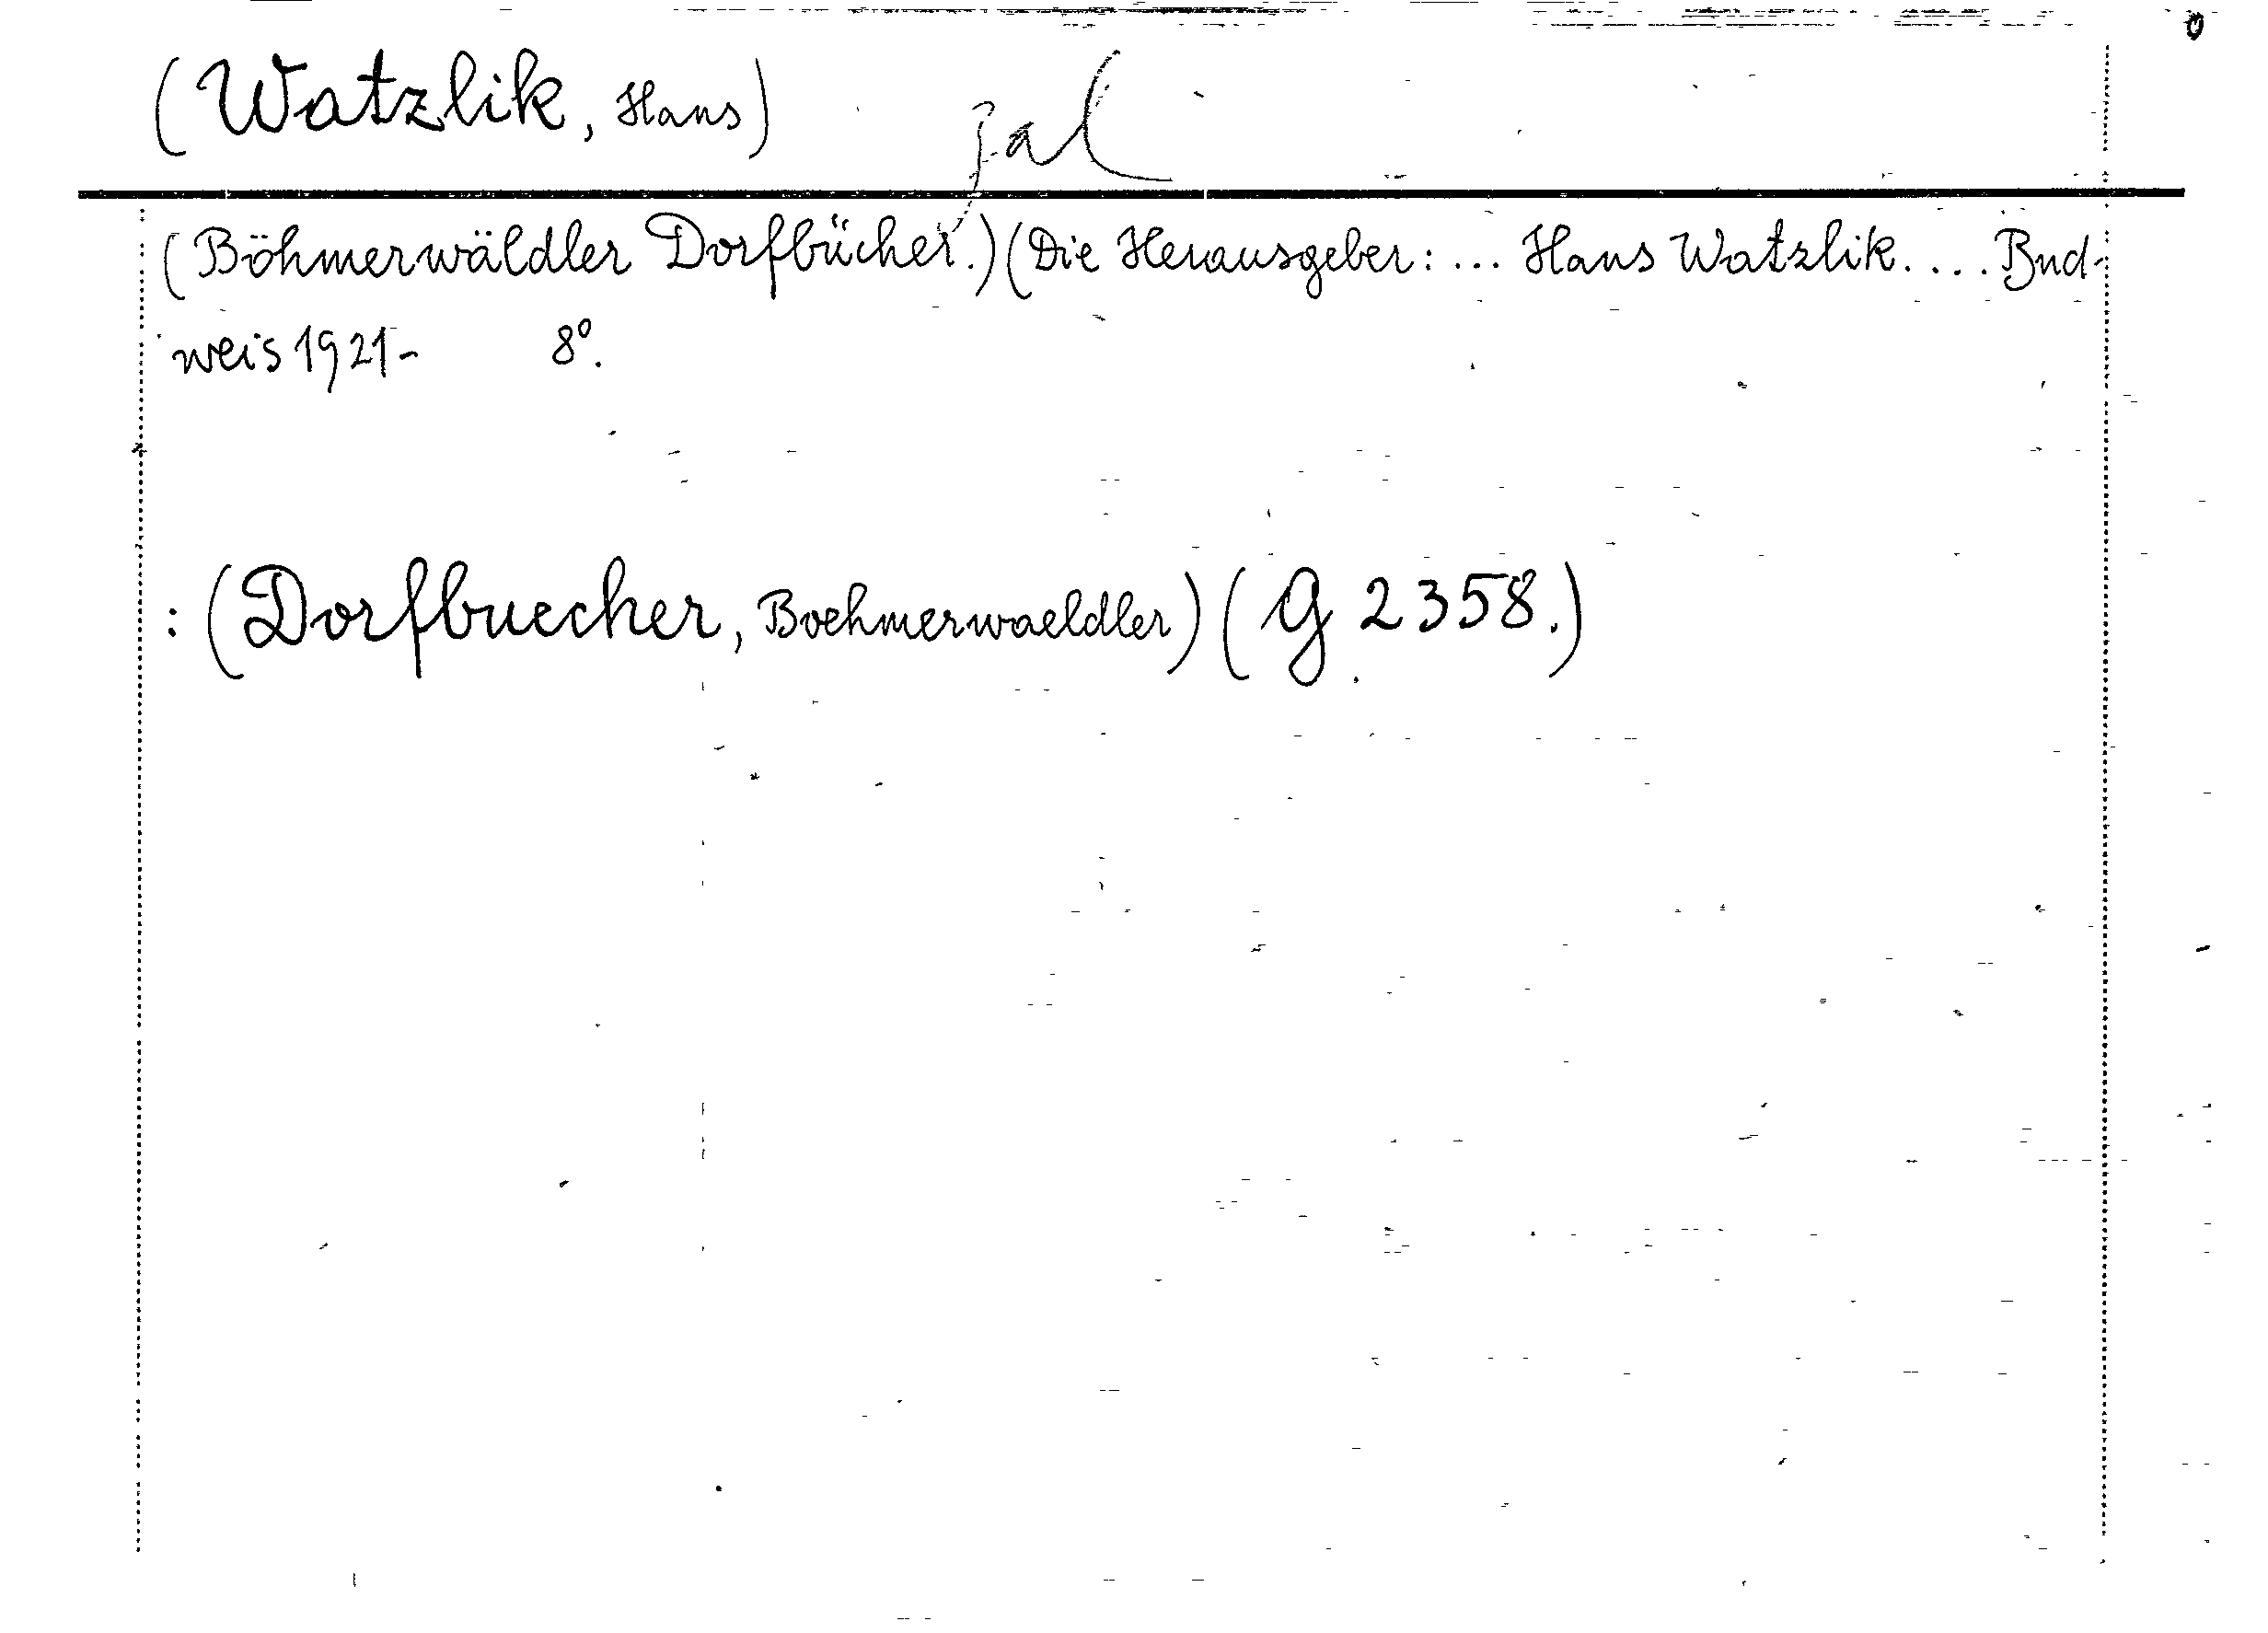 (Watzlik, Hans) zal
(Böhmerwäldler Dorfbücher.) (Die Herausgeber: ... Hans Watzlik. ... Bud-
weis 1921- 8°.
: (Dorfbuecher, Boehmerwaeldler) (G 2358.)